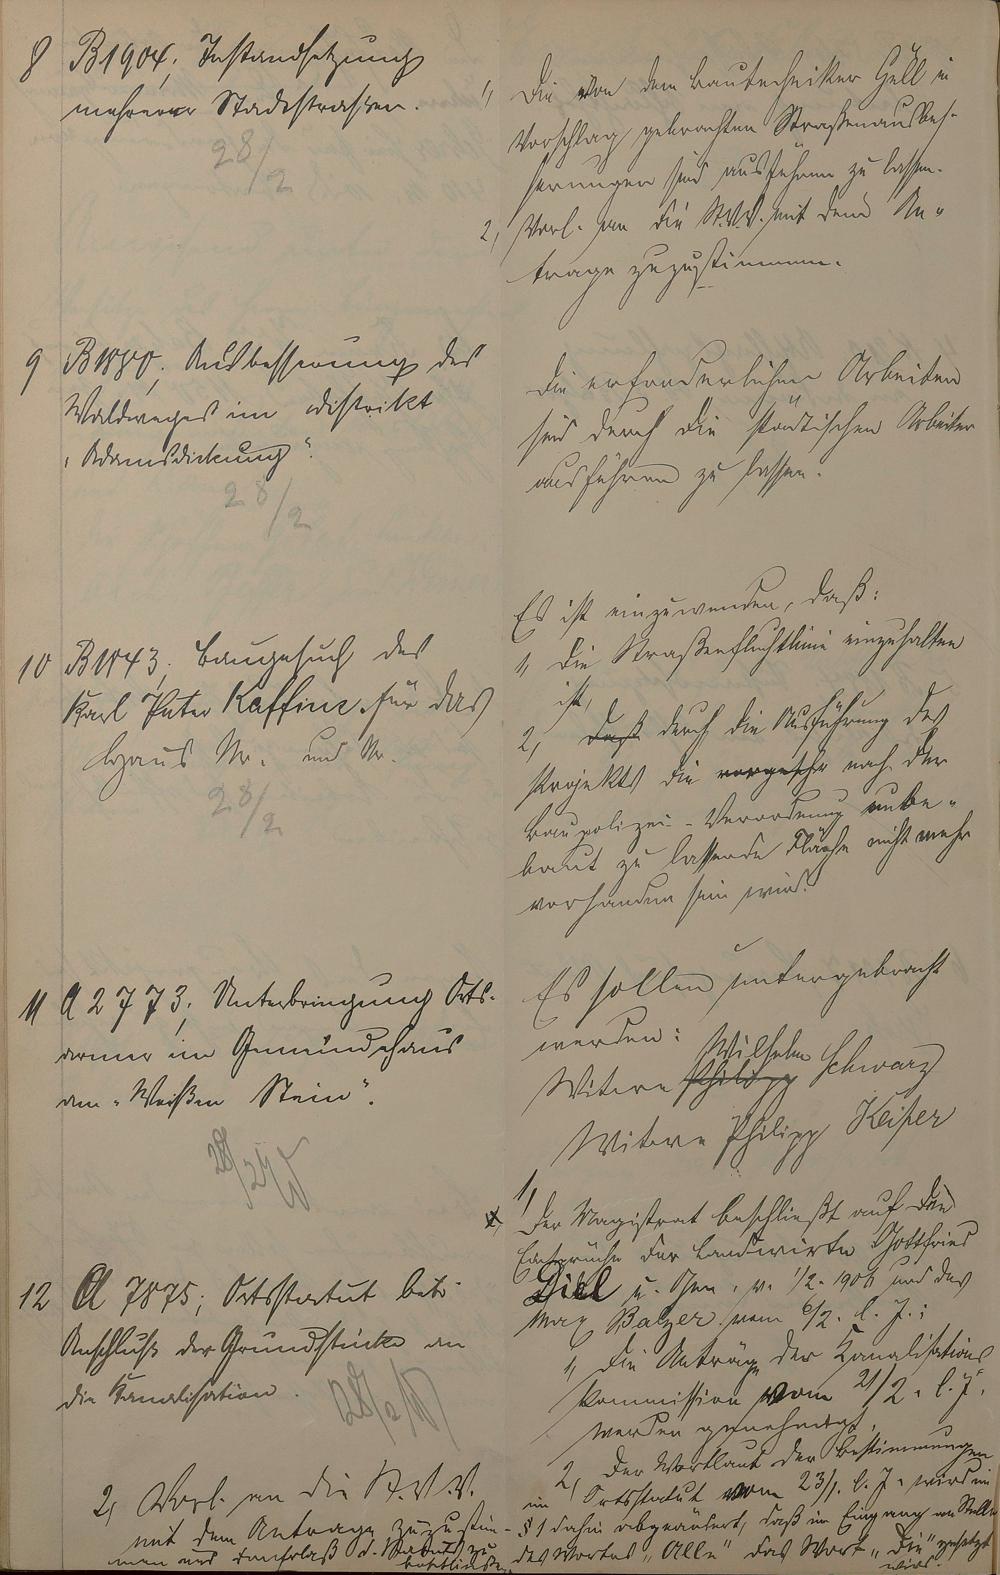 8 B1904; Instandsetzung
mehrerer Stadtstraßen.
28/2
1, Die von dem Bautechniker Göll in
Vorschlag gebrachten Straßenausbes-
serungen sind ausführen zu lassen.
2, Vorl. an die St.V.V. mit dem An-
trage zuzustimmen.
9 B1880; Ausbesserung des
Waldweges im Distrikt
"Adamsdickung".
28/2
Die erforderlichen Arbeiten
sind durch die städtischen Arbeiter
ausführen zu lassen.
10 B1843; Baugesuch des
Karl Peter Kaffine für das
Haus Nr. und Nr.
28/2
Es ist einzuwenden, daß:
1, die Straßenfluchtlinie einzuhalten
ist,
2, daß durch die Ausführung des
Projekts die nach der
Baupolizei-Verordnung unbe-
baut zu lassende Fläche nicht mehr
vorhanden sein wird.
11 A 2773; Unterbringung Orts-
armer im Gemeindehaus
am "Weißen Stein".
28/2
Es sollen untergebracht
werden:
Wilhelm
Witwe Philipp Schwarz
Witwe Philipp Keiper
12 A 7875; Ortsstatut betr.
Anschluß der Grundstücke an
die Kanalisation.
28/2
1,
Der Magistrat beschließt auf die
Einsprüche der Landwirte Gottfried
Diel u. Gen. v. 1/2. 1906 und des
Max Balzer vom 6/2. l. J.:
1, Die Anträge der Kanalisations
Kommission vom 21/2. l. J.
werden genehmigt.
2, Der Wortlaut der Bestimmungen
im Ortsstatut vom 23/1. l. J. wird im
§ 1 dahin abgeändert, daß im Eingang an Stelle
des Wortes "Alle" das Wort "Die" gesetzt
wird.
2, Vorl. an die St.V.V.
mit dem Antrage zuzustim-
men und d. Statuts zu